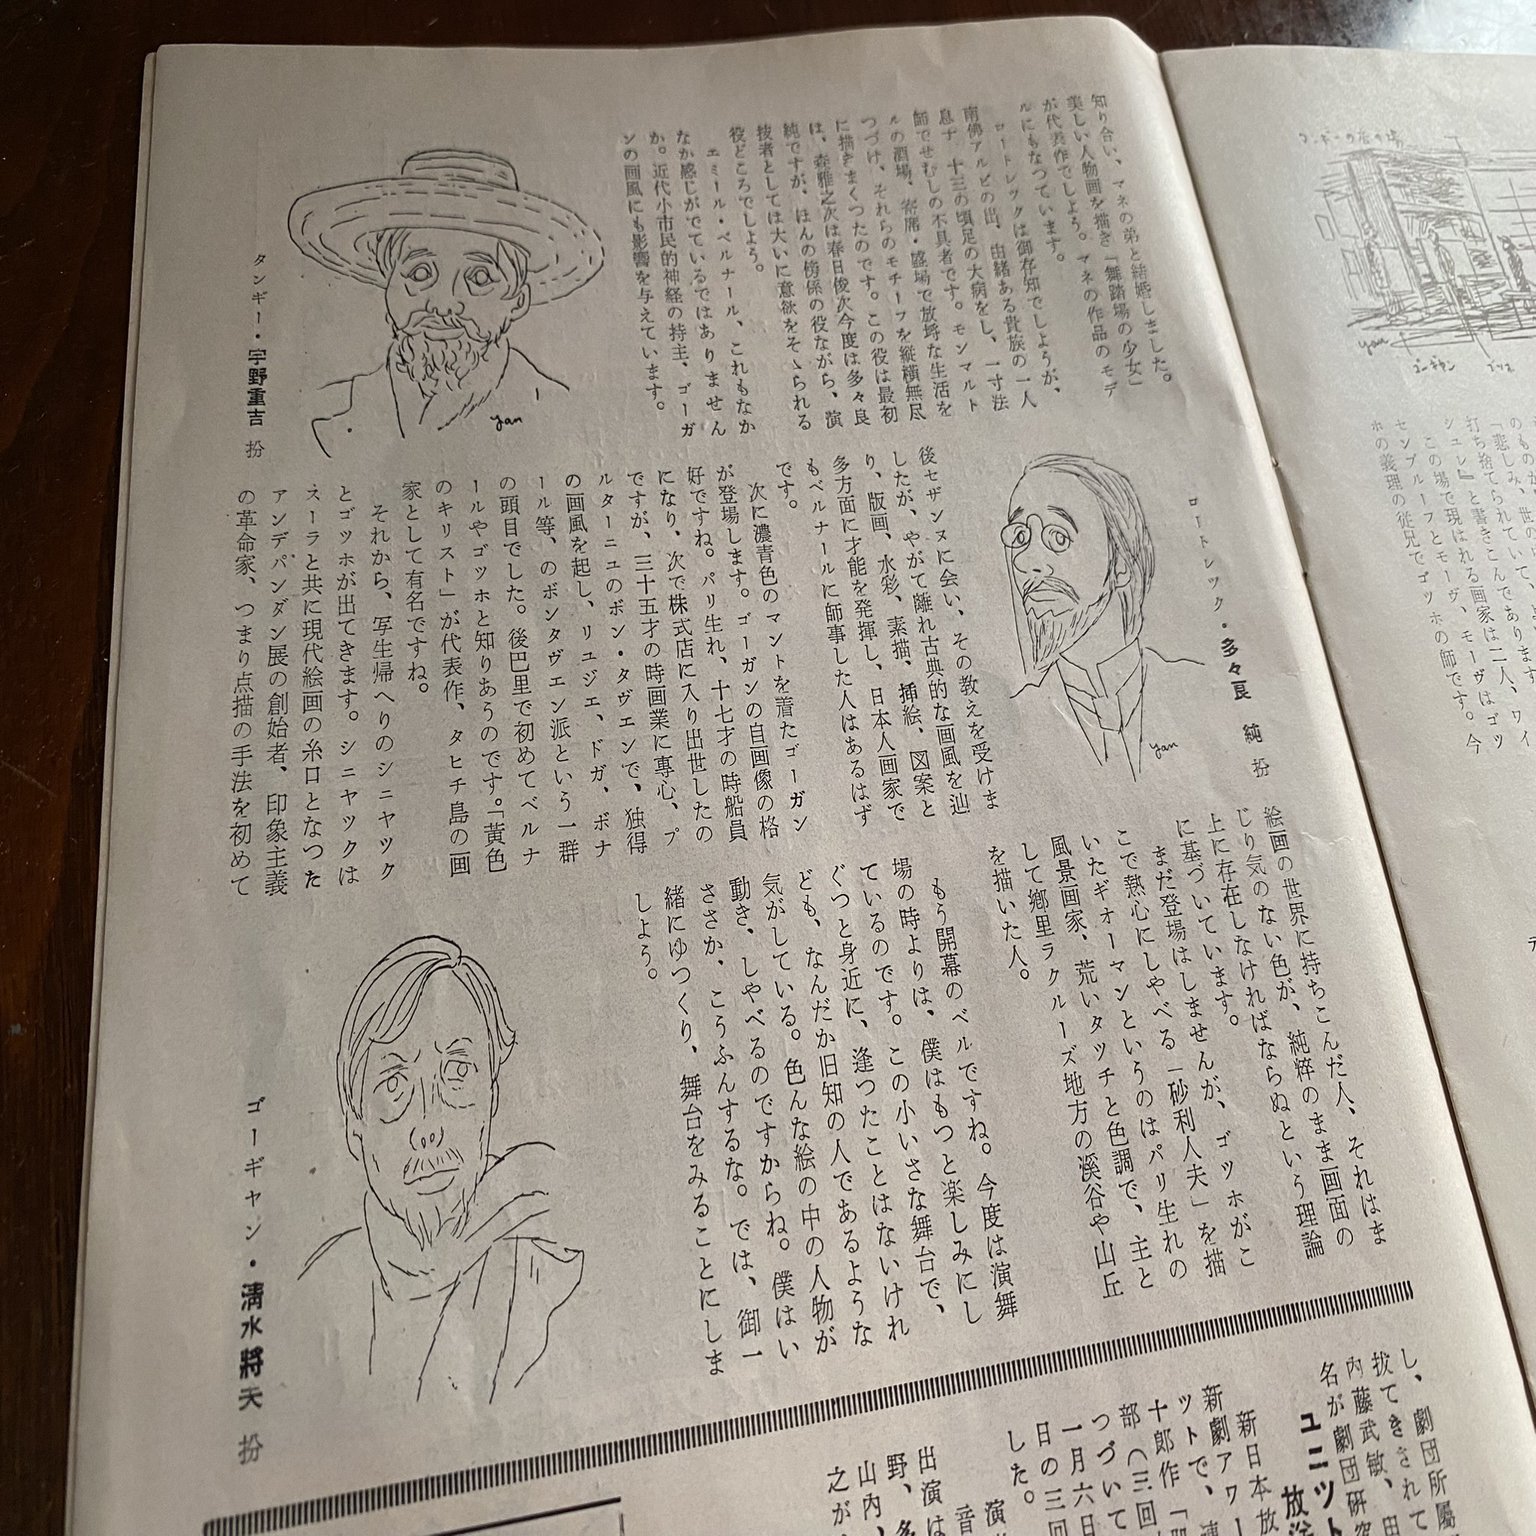 知り合い、マネの弟と結婚しました。
美しい人物画を描き「舞踏場の少女」
が代表作でしよう。マネの作品のモデ
ルにもなつています。
ロートレックは御存知でしようが、
南佛アルビの出、由緒ある貴族の一人
息子、十三の頃足の大病をし、一寸法
師でせむしの不具者です。モンマルト
ルの酒場、寄席・盛場で放埓な生活を
つづけ、それらのモチーフを縦横無尽
に描きまくつたのです。この役は最初
は、森雅之次は春日俊次今度は多々良
純ですが、ほんの傍係の役ながら、演
技者としては大いに意欲をそゝられる
役どころでしよう。
エミール・ベルナール、これもなか
なか感じがでているではありません
か。近代小市民的神経の持主、ゴーガ
ンの画風にも影響を与えています。
yan
タンギー・宇野重吉 扮
ロートレツク・多々良 純 扮
yan
後セザンヌに会い、その教えを受けま
したが、やがて離れ古典的な画風を辿
り、版画、水彩、素描、挿絵、図案と
多方面に才能を発揮し、日本人画家で
もベルナールに師事した人はあるはず
です。
次に濃青色のマントを着たゴーガン
が登場します。ゴーガンの自画像の格
好ですね。パリ生れ、十七才の時船員
になり、次で株式店に入り出世したの
ですが、三十五才の時画業に専心、ブ
ルターニユのポン・タヴエンで、独得
の画風を起し、リユジエ、ドガ、ボナ
ール等、のポンタヴエン派という一群
の頭目でした。後巴里で初めてベルナ
ールやゴツホと知りあうのです。「黄色
のキリスト」が代表作、タヒチ島の画
家として有名ですね。
それから、写生帰へりのシニヤツク
とゴツホが出てきます。シニヤツクは
スーラと共に現代絵画の糸口となつた
アンデパンダン展の創始者、印象主義
の革命家、つまり点描の手法を初めて
絵画の世界に持ちこんだ人、それはま
じり気のない色が、純粋のまま画面の
上に存在しなければならぬという理論
に基づいています。
まだ登場はしませんが、ゴツホがこ
こで熱心にしやべる「砂利人夫」を描
いたギオーマンというのはパリ生れの
風景画家、荒いタツチと色調で、主と
して郷里ラクルーズ地方の溪谷や山丘
を描いた人。
もう開幕のベルですね。今度は演舞
場の時よりは、僕はもつと楽しみにし
ているのです。この小いさな舞台で、
ぐつと身近に、逢つたことはないけれ
ども、なんだか旧知の人であるような
気がしている。色んな絵の中の人物が
動き、しやべるのですからね。僕はい
ささか、こうふんするな。では、御一
緒にゆつくり、舞台をみることにしま
しよう。
ゴーギャン・清水將夫 扮
し、劇団所屬
抜てきされて
内藤武敏、田
名が劇団研究
ユニツト
放送
新日本放
新劇アワー
ツトで、連
十郎作「
部（三回
つづいて
一月六日
日の三回
した。
出演は
野、多
山内、
之が
yan
ゴーギャン
のものが、世の
「悲しみ、
打ち捨てられていて、
シユレ』と書きこんであります
この場で現はれる画家は二人、ワイ
センブルーフとモーヴ、モーヴはゴツ
ホの義理の従兄でゴツホの師です。今